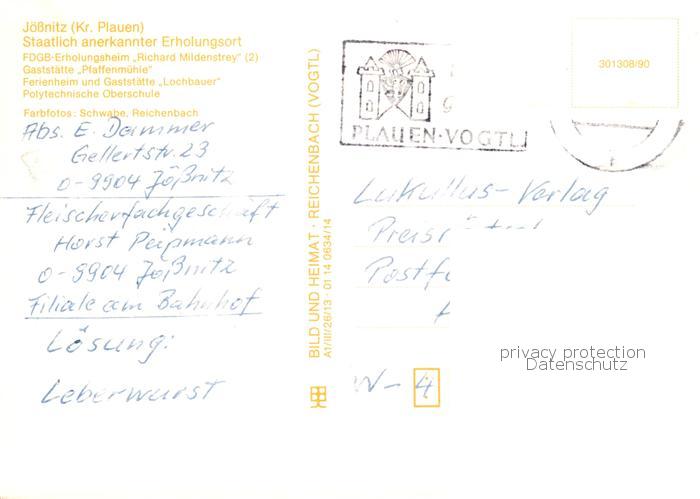 Jößnitz (Kr. Plauen)
Staatlich anerkannter Erholungsort
FDGB-Erholungsheim „Richard Mildenstrey“ (2)
Gaststätte „Pfaffenmühle“
Ferienheim und Gaststätte „Lochbauer“
Polytechnische Oberschule
Farbfotos: Schwabe, Reichenbach
Abs. E. Dammer
Gellertstr. 23
O-9904 Jößnitz
Fleischerfachgeschäft
Horst Peipmann
O-9904 Jößnitz
Filiale am Bahnhof
Lösung:
Leberwurst
BILD UND HEIMAT · REICHENBACH (VOGTL)
A1/III/26/13 · 01 14 0634/14
PLAUEN·VOGTL
301308/90
Lukullus-Verlag
Preisr
Postf
W-4
privacy protection
Datenschutz